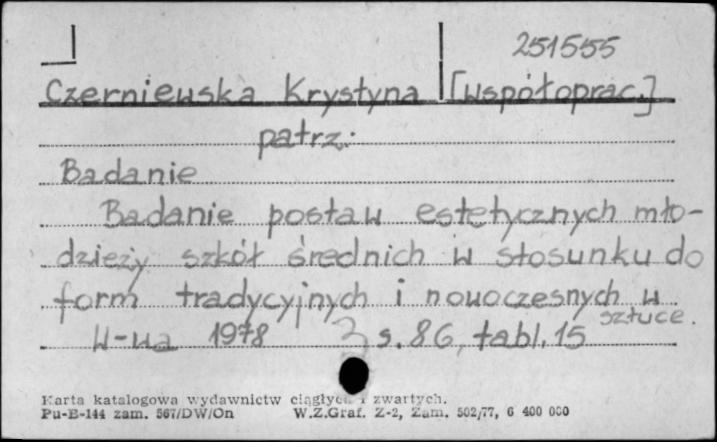 251555
Czerniewska Krystyna [współoprac.]
patrz:
Badanie
Badanie postaw estetycznych mło-
dzieży szkół średnich w stosunku do
form tradycyjnych i nowoczesnych w
sztuce.
W-wa 1978 s. 86, tabl. 15
Karta katalogowa wydawnictw ciągłych i zwartych.
Pu-B-144 zam. 567/DW/On W.Z.Graf. Z-2, Zam. 502/77, 6 400 000